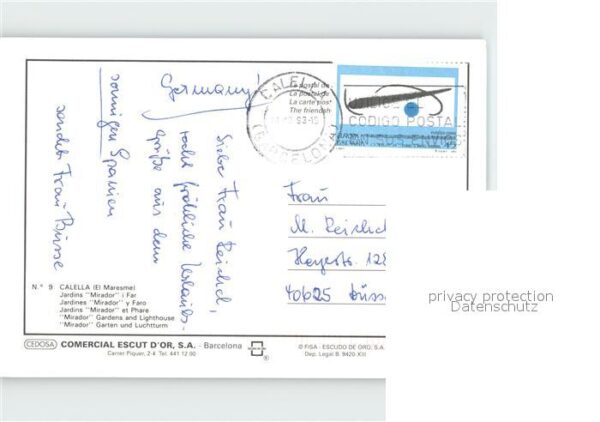 Germany!
Liebe Frau Reichel,
recht fröhliche Urlaubs-
grüße aus dem
sonnigen Spanien
sendet Frau Busse
La carte post
The friendsh
CALELLA
93-
BARCELONA
CODIGO POSTAL
Frau
M. Reichel
40625 Düss
N.º 9 CALELLA (El Maresme)
Jardins "Mirador" i Far
Jardines "Mirador" y Faro
Jardins "Mirador" et Phare
"Mirador" Gardens and Lighthouse
"Mirador" Garten und Luchtturm
CEDOSA COMERCIAL ESCUT D'OR, S.A. - Barcelona
Carrer Piquer, 2-4 Tel. 441 12 00
®
© FISA - ESCUDO DE ORO, S.A.
Dep. Legal B. 9420-XIII
privacy protection
Datenschutz